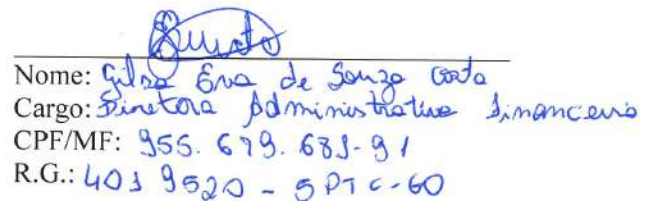 Nome: Gilza Eva de Souza Costa
Cargo: Diretora Administrativa Financeira
CPF/MF: 955.679.681-91
R.G.: 4019520 - SPTC-GO